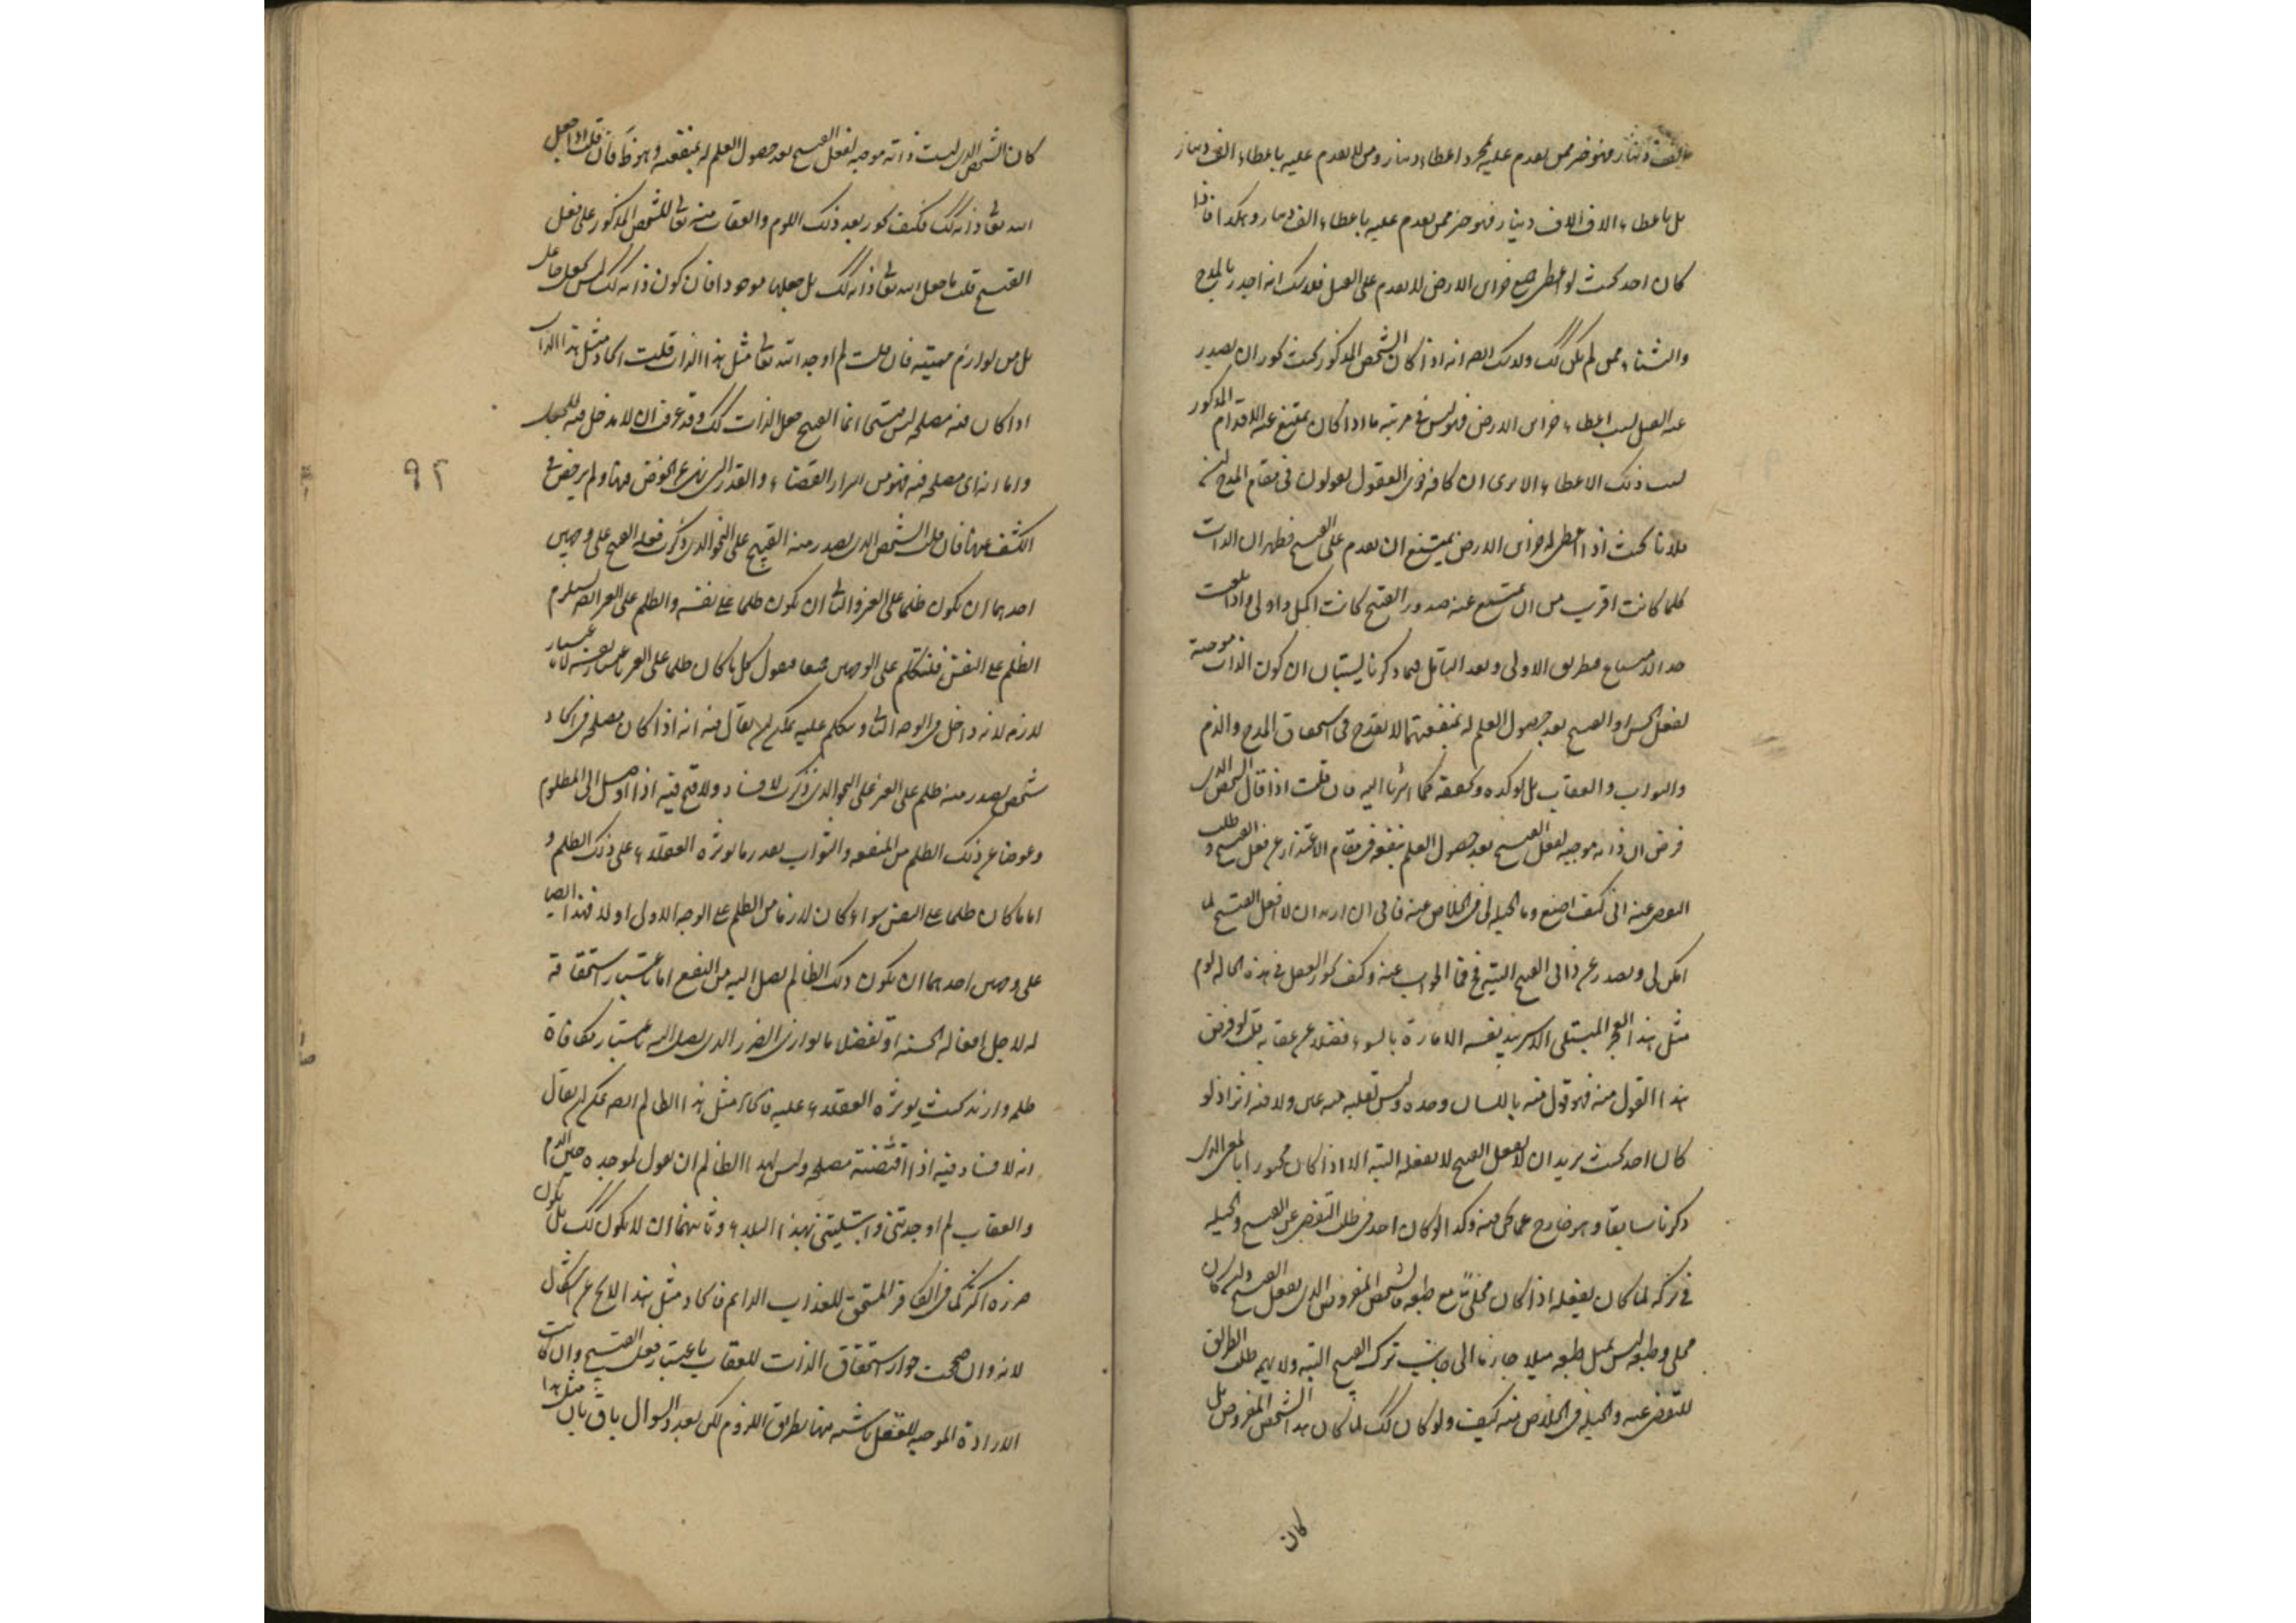 دينار فهو خير ممن يعدم عليه بمجرد اعطاء دينار ومن لا يعدم عليه باعطاء الف دينار
بل باعطاء الاف الاف دينار فهو خير ممن يعدم عليه باعطاء الف دينار وهكذا فاذا
كان احد بحيث لو اعطى جميع خزاين الارض لا يعدم على الفعل فلا شك انه اجدر بالمدح
والثناء ممن لم يكن كك ولا شك ايضا انه اذا كان الشخص المذكور بحيث يجوز ان يصدر
عنه الفعل بسبب اعطاء خزاين الارض فهو ليس في مرتبة ما اذا كان يمتنع عنه الاقدام المذكور
بسبب ذلك الاعطاء الا يرى ان كافة ذوي العقول يقولون في مقام المدح ان
فلانا بحيث اذا اعطى له خزاين الارض يمتنع ان يقدم على القبيح فظهر ان الذات
كلما كانت اقرب من ان يمتنع عنه صدور القبيح كانت اكمل واولى واذا بلغت
حد الامتناع فبطريق الاولى وبعد التأمل فيما ذكرنا يستبان ان كون الذات موجبة
لفعل الحسن او القبيح بعد حصول العلم له بمنفعتهما لا يقدح في استحقاق المدح والذم
والثواب والعقاب بل يؤكده ويحققه كما اشرنا اليه فان قلت اذا قال الشخص الذي
فرض ان ذاته موجبة لفعل القبيح بعد حصول العلم بنفعه في مقام الاعتذار عن فعل القبيح وطلب
التفصي عنه اني كيف اصنع وما الحيلة لي في الخلاص عنه فاني ان اردت ان لا افعل القبيح لما
امكن لي ويصدر عن ذاتي القبيح البتة فما الجواب عنه وكيف يجوز العقل في هذه الحالة لوم
مثل هذا العاجز المبتلى الاسير بيد نفسه الامارة بالسوء فضلا عن عقابه قلت لو فرض
هذا القول منه فهو قول منه باللسان وحده وليس لقلبه منه عين ولا فيه اثر اذ لو
كان احد بحيث يريد ان لا يفعل القبيح لا يفعله البتة الا اذا كان مجبورا بالمعنى الذي
ذكرنا سابقا وهو خارج عما نحن فيه وكذا لو كان احد في طلب التفصي عن القبيح والحيلة
في تركه لما كان يفعله اذا كان مخلى مع طبعه فالشخص المفروض الذي يفعل القبيح وان كان
مخلى وطبعه ليس يميل طبعه ميلا جازما الى جانب ترك القبيح البتة ولا يهم طلب الطريق
للتفصي عنه والحيلة في الخلاص منه كيف ولو كان كك لما كان هذا الشخص المفروض بل
كان
كان الشخص الذي ليست ذاته موجبة لفعل القبيح بعد حصول العلم له بمنفعته وهو خلف فان قلت اذا جعل
الله تعالى ذاته كك فكيف يجوز بعد ذلك اللوم والعقاب منه تعالى للشخص المذكور على فعل
القبيح قلت ما جعل الله تعالى ذاته كك بل جعلها موجودا فان كون ذاته كك ليس بجعل جاعل
بل من لوازم مهيته فان قلت لم اوجد الله تعالى مثل هذا الذات قلت ايجاد مثل هذا الذات
اذا كان فيه مصلحة ليس قبيحا انما القبيح جعل الذات كك وقد عرفت ان لا مدخل فيه للجعل
واما انه اي مصلحة فيه فهو من اسرار القضاء والقدر التي نهى عن الخوض فيها ولم يرخص في
الكشف عنها فان قلت الشخص الذي يصدر منه القبيح على النحو الذي ذكرت فعله القبيح على وجهين
احدهما ان يكون ظلما على الغير والثاني ان يكون ظلما على نفسه والظلم على الغير ايضا يستلزم
الظلم على النفس فلنتكلم على الوجهين فنقول كل ما كان ظلما على الغير
لازمه لانه داخل في الوجه الثاني وسنتكلم عليه يمكن ان يقال فيه انه اذا كان مصلحة في ايجاد
شخص يصدر منه ظلم على الغير على النحو الذي ذكرت لا فساد ولا قبح فيه اذا اوصل الى المظلوم
وعوضا عن ذلك الظلم من المنفعة والثواب بقدر ما يوثره العقلاء على ذلك الظلم و
اما ما كان ظلما على النفس سواء كان لازما من الظلم على الوجه الاول او لا فهذا ايضا
على وجهين احدهما ان يكون ذلك الظالم يصل اليه من النفع اما باعتبار استحقاقه
له لاجل افعاله الحسنة او تفضلا ما يوازي الضرر الذي يصل اليه باعتبار مكافاة
ظلمه وازيد بحيث يوثره العقلاء عليه فايجاد مثل هذا الظالم ايضا يمكن ان يقال
انه لا فساد فيه اذا اقتضته مصلحة وليس لهذا الظالم ان يقول لموجده حين الذم
والعقاب لم اوجدتني وابتليتني بهذا البلاء وثانيهما ان لا يكون كك بل يكون
ضرره اكثر كما في الكافر المستحق للعذاب الدايم فايجاد مثل هذا لا يخ عن اشكال
لانه وان صححت جواز استحقاق الذات للعقاب باعتبار فعله القبيح وان كانت
الارادة الموجبة للفعل ناشية منها بطريق اللزوم لكن بعد السوال باق بان مثل هذا
٩٢